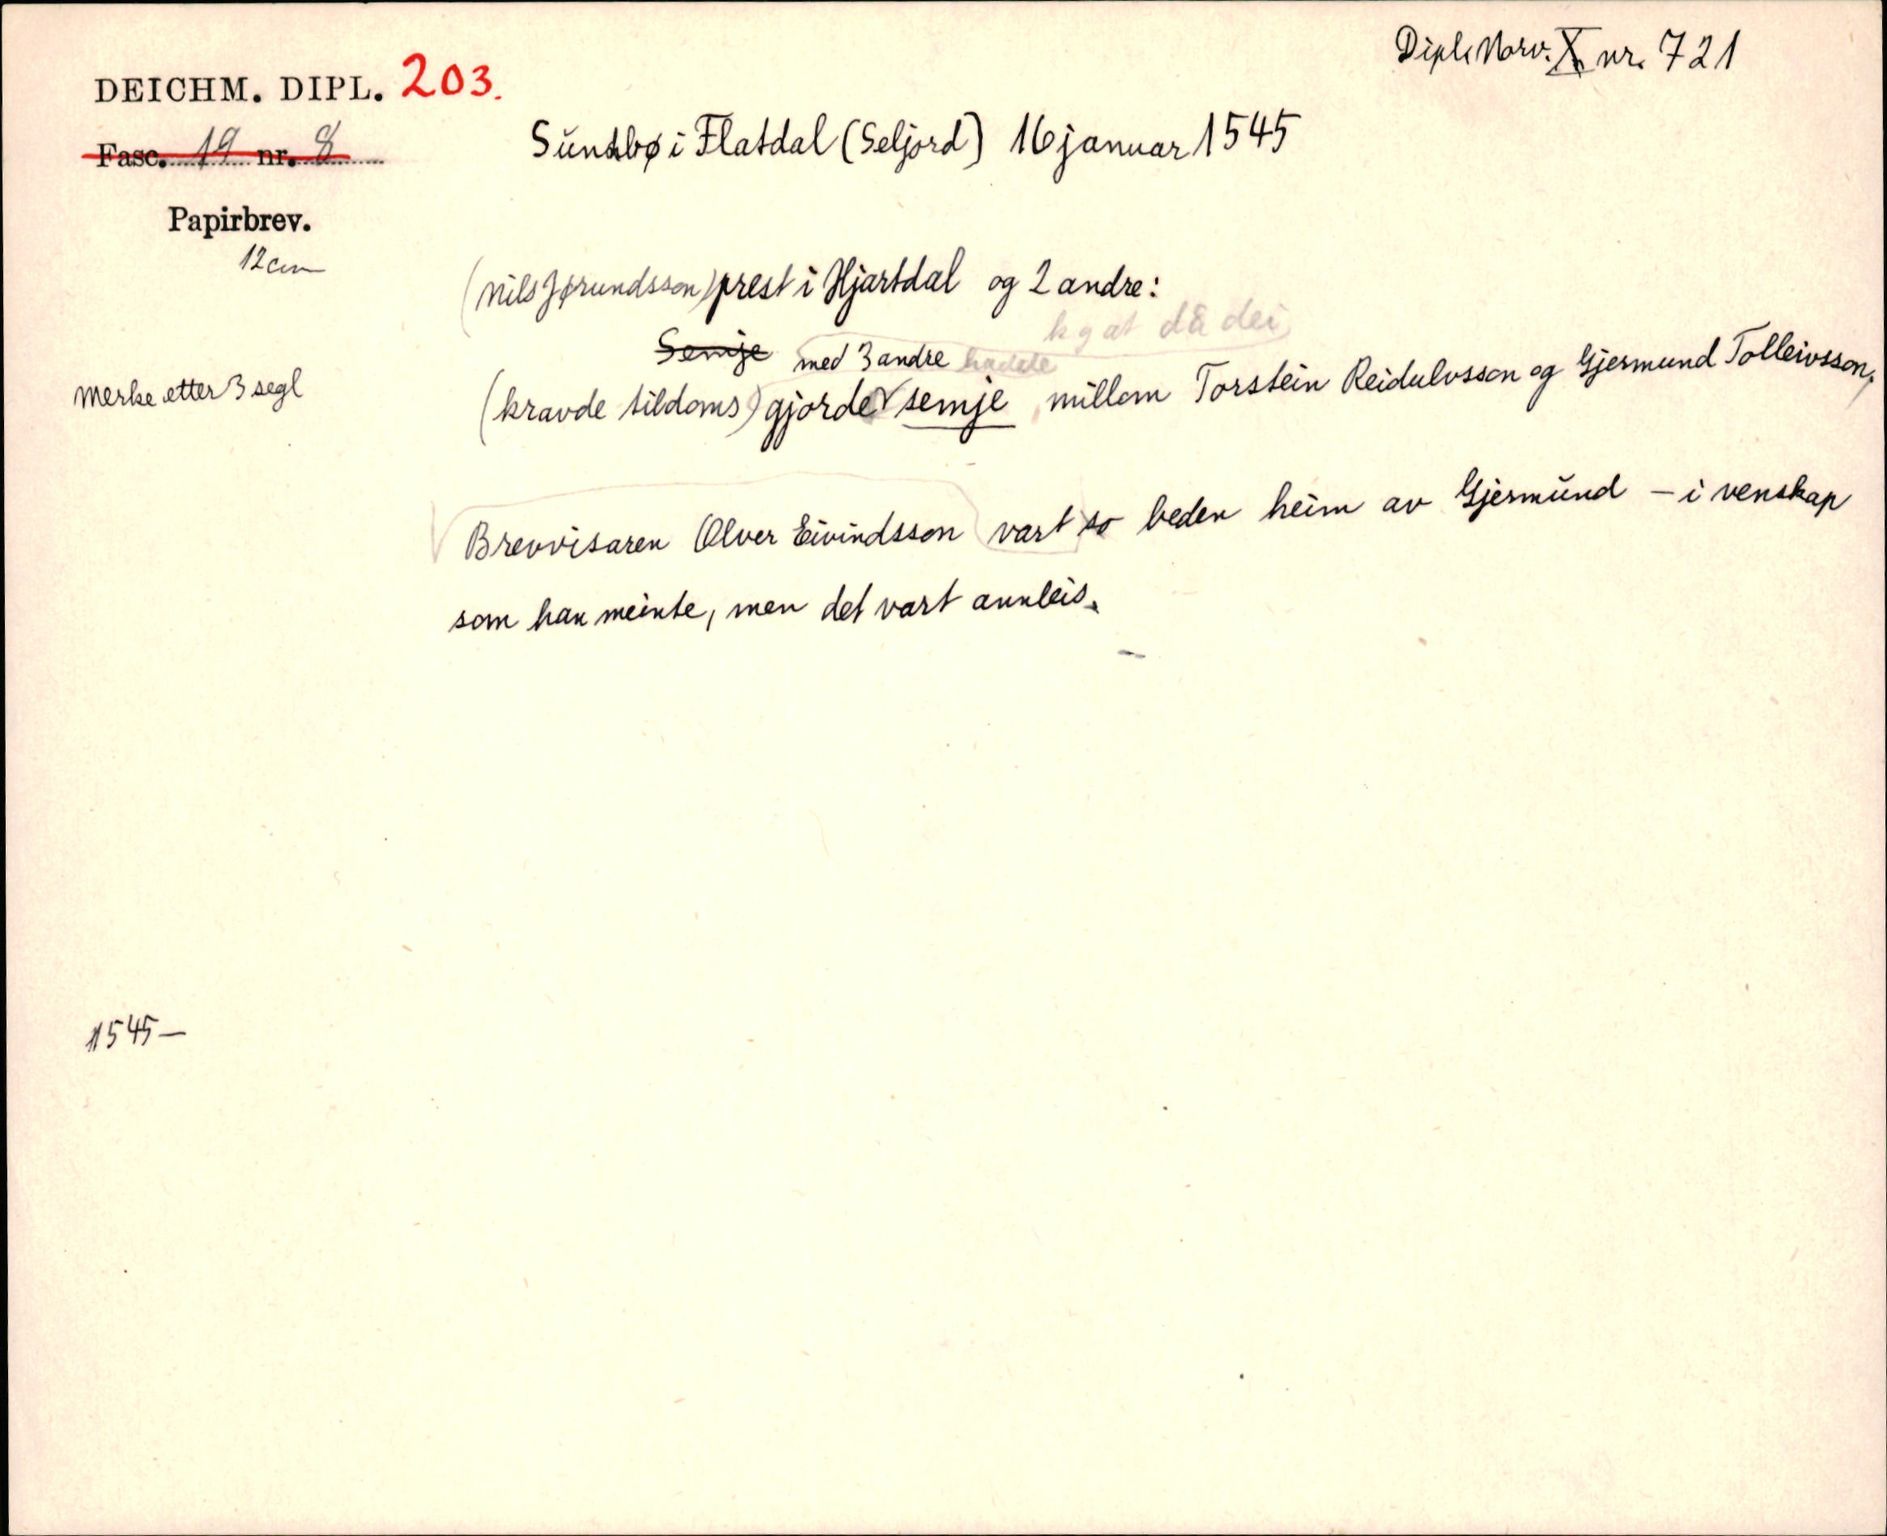 Dipl. Norv. X nr. 721
DEICHM. DIPL. 203.
Fasc. 19 nr. 8
Sundbø i Flatdal (Seljord) 16 januar 1545
Papirbrev.
12 cm
(Nils Jørundsson) prest i Hjartdal og 2 andre:
at då dei
Semje med 3 andre hadde
Merke etter 3 segl
(kravde tildoms) gjorde semje millom Torstein Reidulvsson og Gjermund Tolleivsson,
Brevvisaren Ølver Eivindsson vart so beden heim av Gjermund - i venskap
som han meinte, men det vart annleis.
1545-